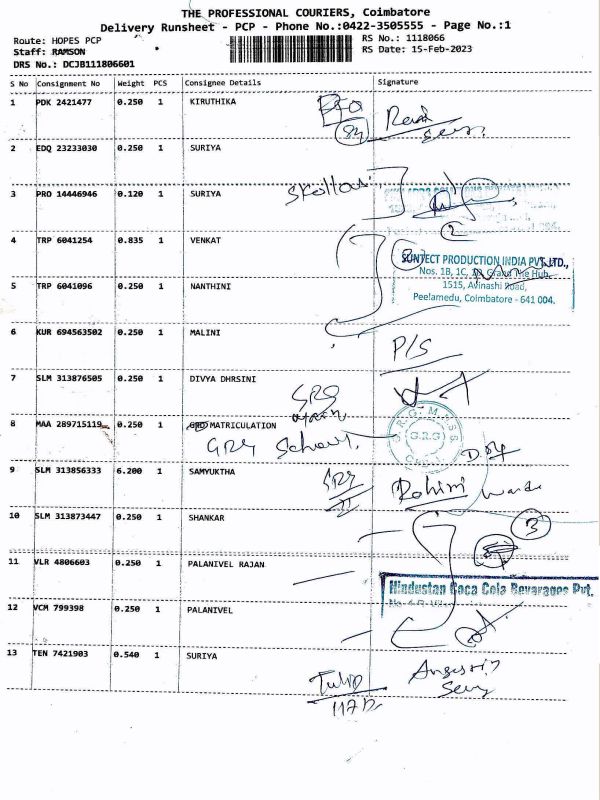 THE PROFESSIONAL COURIERS, Coimbatore
Delivery Runsheet - PCP - Phone No.:0422-3505555 - Page No.:1
Route: HOPES PCP
Staff: RAMSON
DRS No.: DCJB111806601
RS No.: 1118066
RS Date: 15-Feb-2023
S No Consignment No Weight PCS Consignee Details Signature
1 PDK 2421477 0.250 1 KIRUTHIKA
2 EDQ 23233030 0.250 1 SURIYA
3 PRO 14446946 0.120 1 SURIYA
2
4 TRP 6041254 0.835 1 VENKAT
SUNTECT PRODUCTION INDIA PVT. LTD.,
Nos. 1B, 1C, Hub,
1515, Avinashi Road,
Peelamedu, Coimbatore - 641 004.
5 TRP 6041096 0.250 1 NANTHINI
6 KUR 694563502 0.250 1 MALINI
P/S
7 SLM 313876505 0.250 1 DIVYA DHRSINI
GRG
8 MAA 289715119 0.250 1 GRD MATRICULATION
GRG School.
G.R.G
9 SLM 313856333 6.200 1 SAMYUKTHA
Rohini
10 SLM 313873447 0.250 1 SHANKAR
3
11 VLR 4806603 0.250 1 PALANIVEL RAJAN
Hindustan Coca Cola Bevarages Pvt.
12 VCM 799398 0.250 1 PALANIVEL
13 TEN 7421903 0.540 1 SURIYA
Tulip
117D